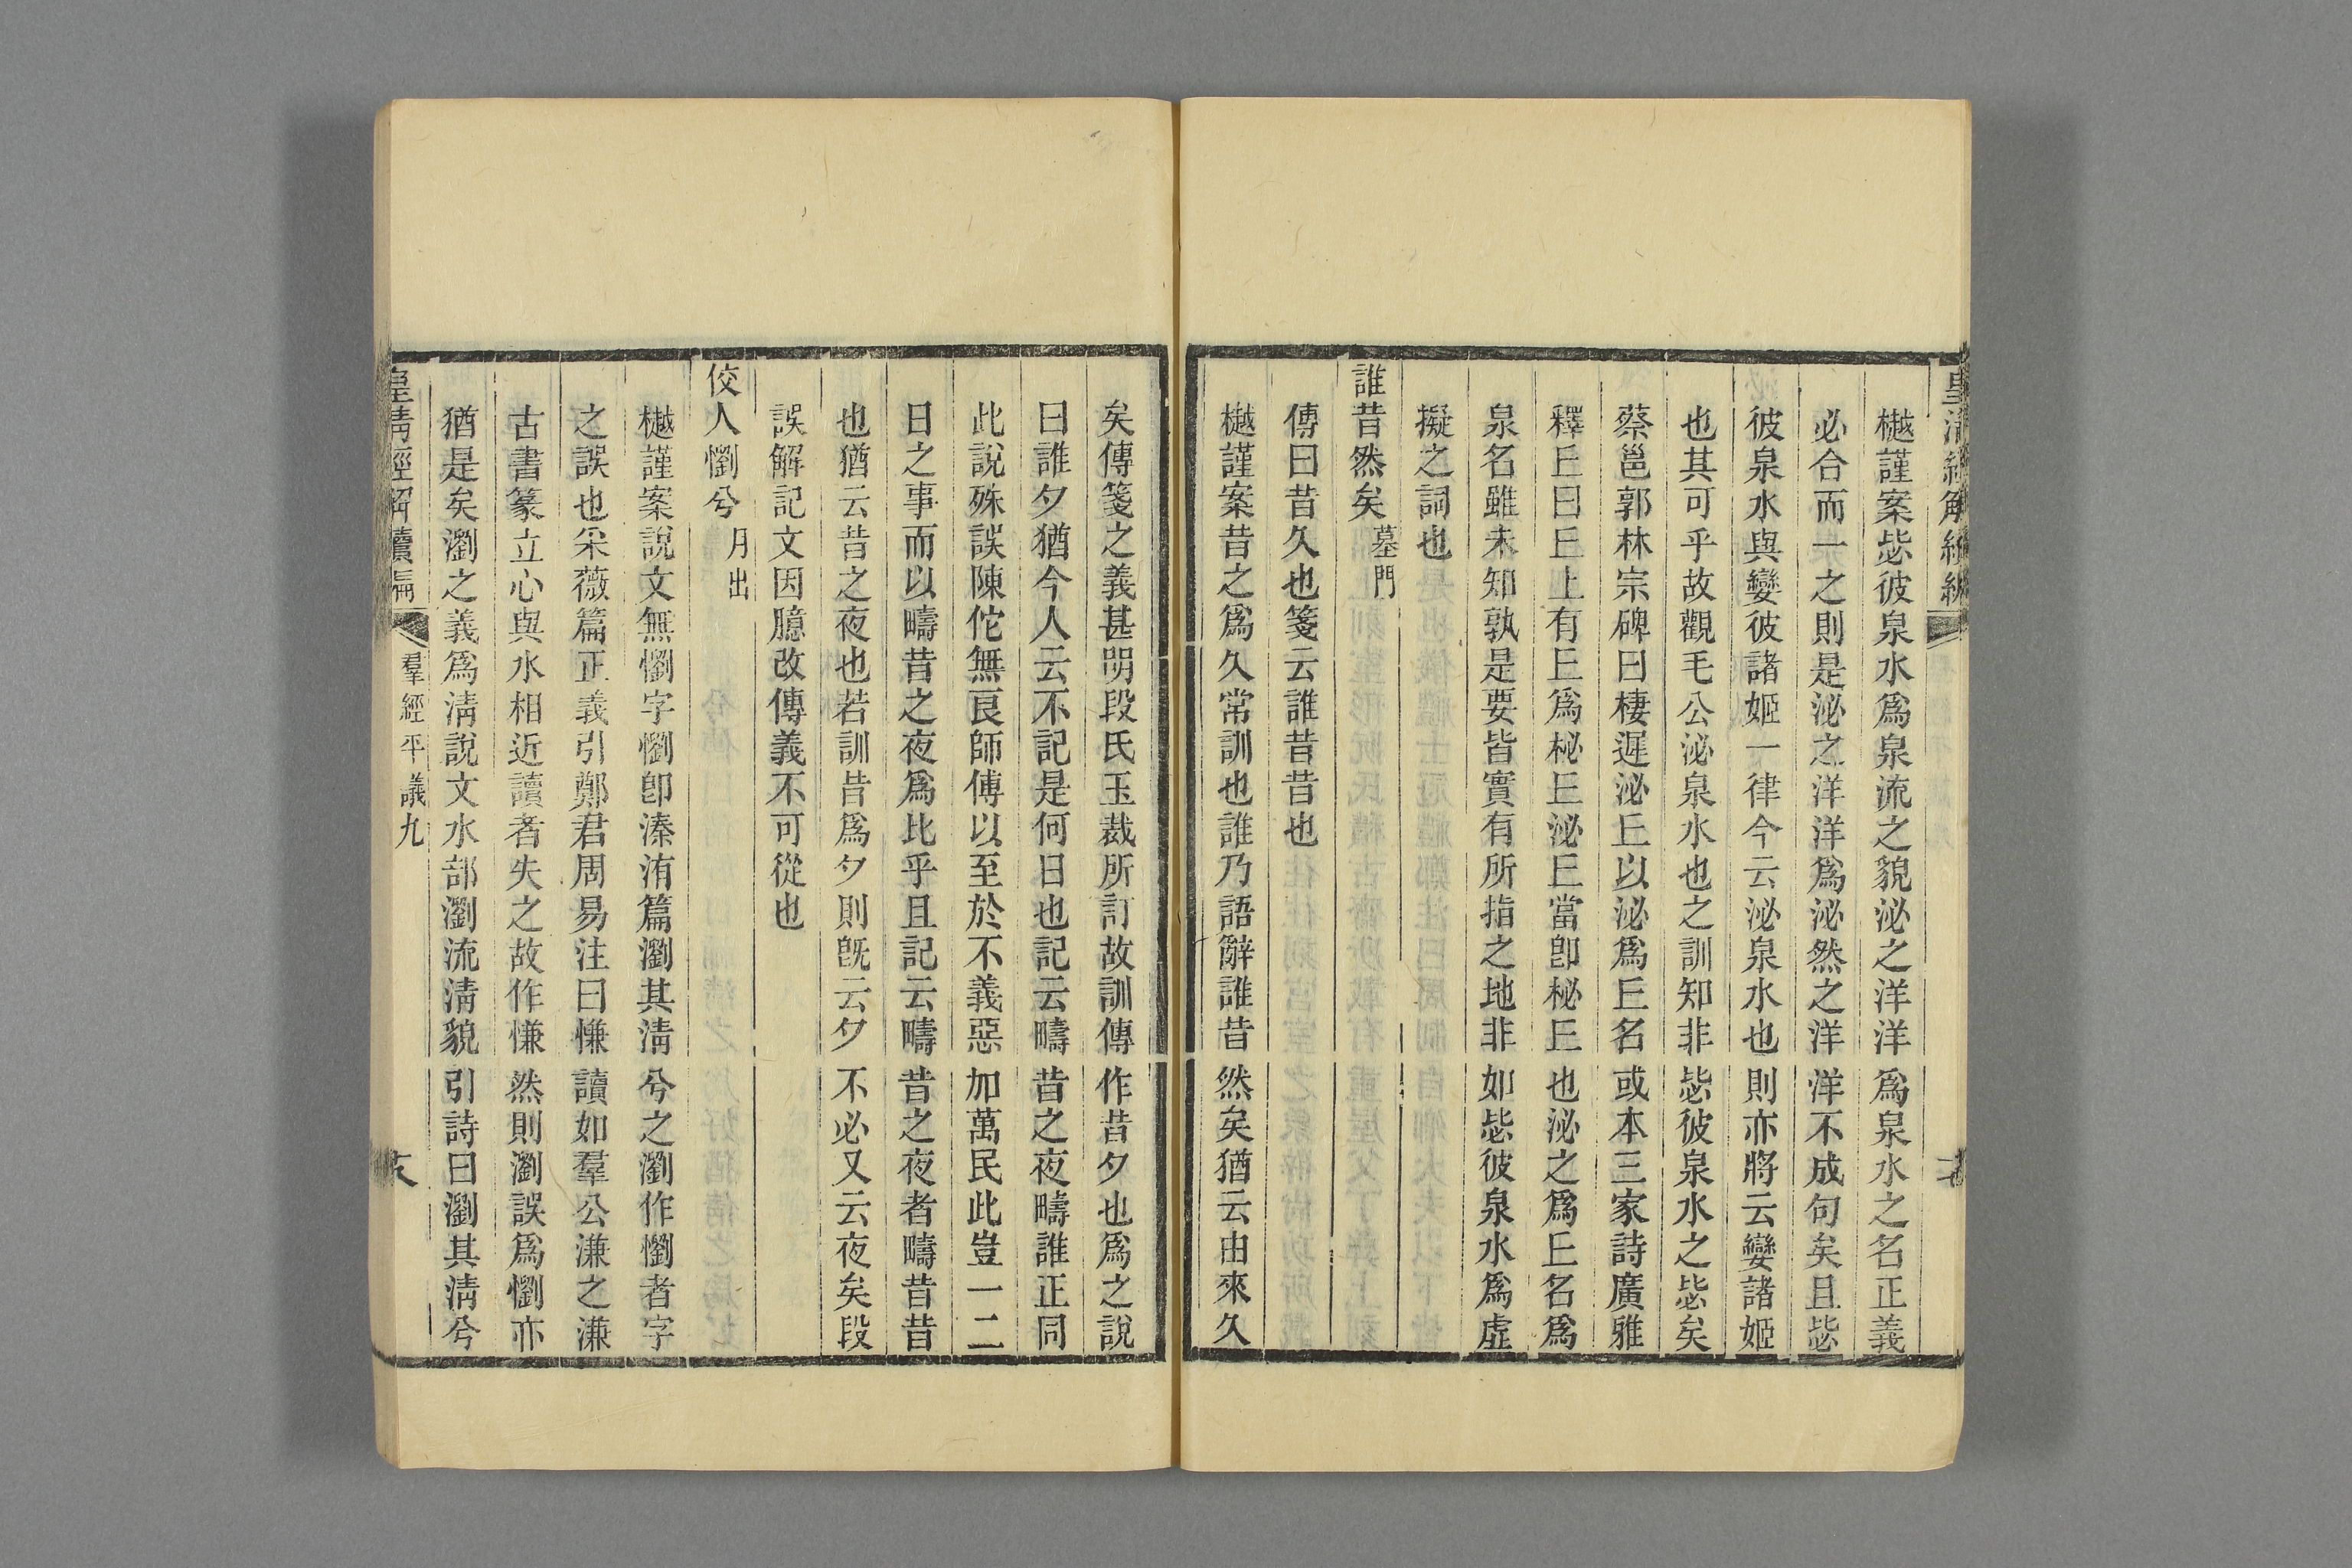 皇清經解續編
樾謹案毖彼泉水爲泉流之貌泌之洋洋爲泉水之名正義
必合而一之則是泌之洋洋爲泌然之洋洋不成句矣且毖
彼泉水與孌彼諸姬一律今云泌泉水也則亦將云孌諸姬
也其可乎故觀毛公泌泉水也之訓知非毖彼泉水之毖矣
蔡邕郭林宗碑曰棲遲泌𠀉以泌爲𠀉名或本三家詩廣雅
釋𠀉曰𠀉上有𠀉爲柲𠀉泌𠀉當卽柲𠀉也泌之爲𠀉名爲
泉名雖未知孰是要皆實有所指之地非如毖彼泉水爲虛
擬之詞也
誰昔然矣 墓門
傳曰昔久也箋云誰昔昔也
樾謹案昔之爲久常訓也誰乃語辭誰昔然矣猶云由來久
矣傳箋之義甚明段氏玉裁所訂故訓傳作昔夕也爲之說
曰誰夕猶今人云不記是何日也記云疇昔之夜疇誰正同
此說殊誤陳佗無良師傅以至於不義惡加萬民此豈一二
日之事而以疇昔之夜爲比乎且記云疇昔之夜者疇昔昔
也猶云昔之夜也若訓昔爲夕則旣云夕不必又云夜矣段
誤解記文因臆改傳義不可從也
佼人懰兮 月出
樾謹案說文無懰字懰卽溱洧篇瀏其淸兮之瀏作懰者字
之誤也采薇篇正義引鄭君周易注曰慊讀如羣公溓之溓
古書篆立心與水相近讀者失之故作慊然則瀏誤爲懰亦
猶是矣瀏之義爲淸說文水部瀏流淸貌引詩曰瀏其淸兮
皇淸經解續編
羣經平議九